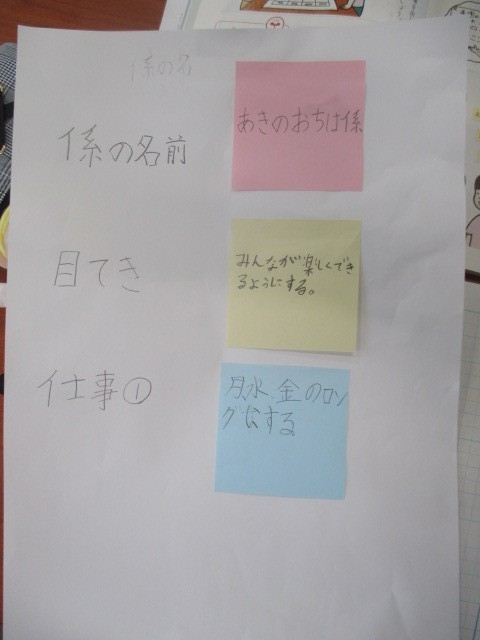 係の名
係の名前
あきのおちは係
目てき
みんなが楽しくでき
るようにする。
仕事①
月水金のロン
グにする